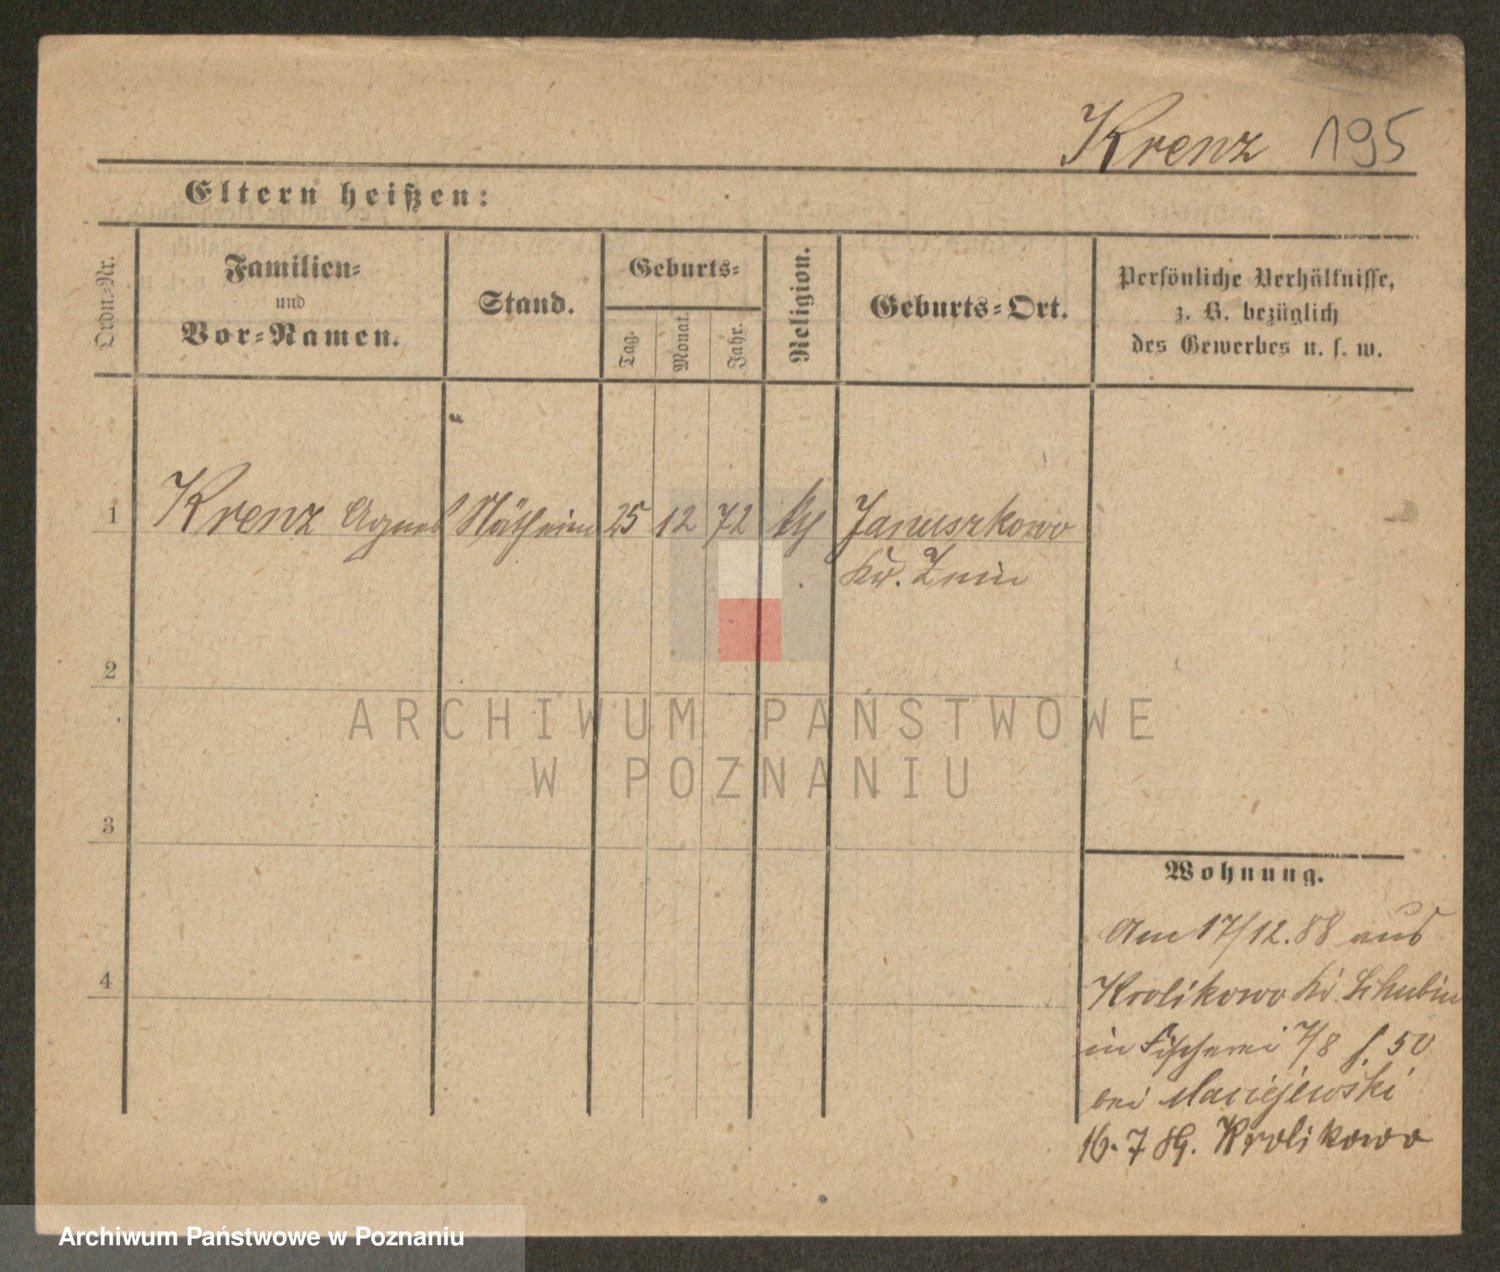 Krenz 195
Eltern heißen:
Ordn.-Nr.
Familien-
und
Vor-Namen.
Stand.
Geburts-
Tag.
Monat.
Jahr.
Religion.
Geburts-Ort.
Persönliche Verhältnisse,
z. B. bezüglich
des Gewerbes u. s. w.
1 Krenz Agnes Näherin 25 12 72 Januszkowo
Kr. Znin
2
3
4
Wohnung.
Am 17/12.88 aus
Krolikowo Kr. Schubin
in Fischerei 7/8 f. 50
bei Maciejewski
16.7 89. Krolikowo
ARCHIWUM PAŃSTWOWE
W POZNANIU
Archiwum Państwowe w Poznaniu